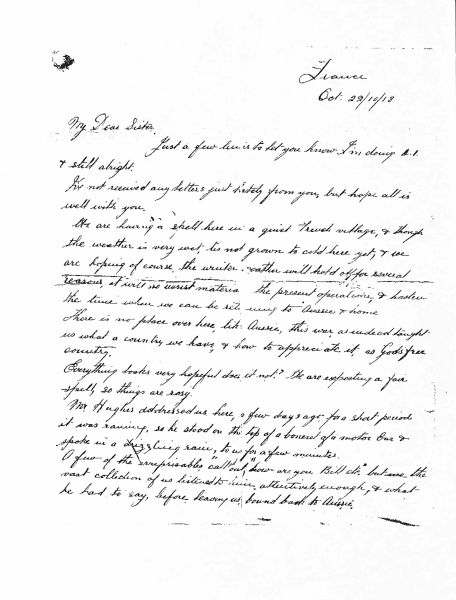 France
Oct. 29/10/18
My Dear Sister.
Just a few lines to let you know I'm doing A.1.
& still alright.
I've not received any letters just lately from you, but hope all is
well with you.
We are having a spell here in a quiet French village, & though
the weather is very wet, tis not grown to cold here yet, & we
are hoping of course the winter weather will hold off for several
reasons, it will no assist materia the present operations, & hasten
the time when we can be returning to Aussie & home
There is no place over here, like Aussie, this war, as indeed taught
us what a country we have, & how to appreciate it, as Gods free
country.
Everything looks very hopeful does it not? We are expecting a fair
spell, so things are rosy.
Mr Hughes addressed us here, a few days ago for a short period
it was raining, so he stood on the top of a bonnet of a motor Car &
spoke in a drizzling rain, to us for a few minutes.
A few of the irrepressibles call out, "how are you Bill etc" but we the
vast collection of us listened to attentively enough, & what
he had to say, before leaving us, bound back to Aussie,